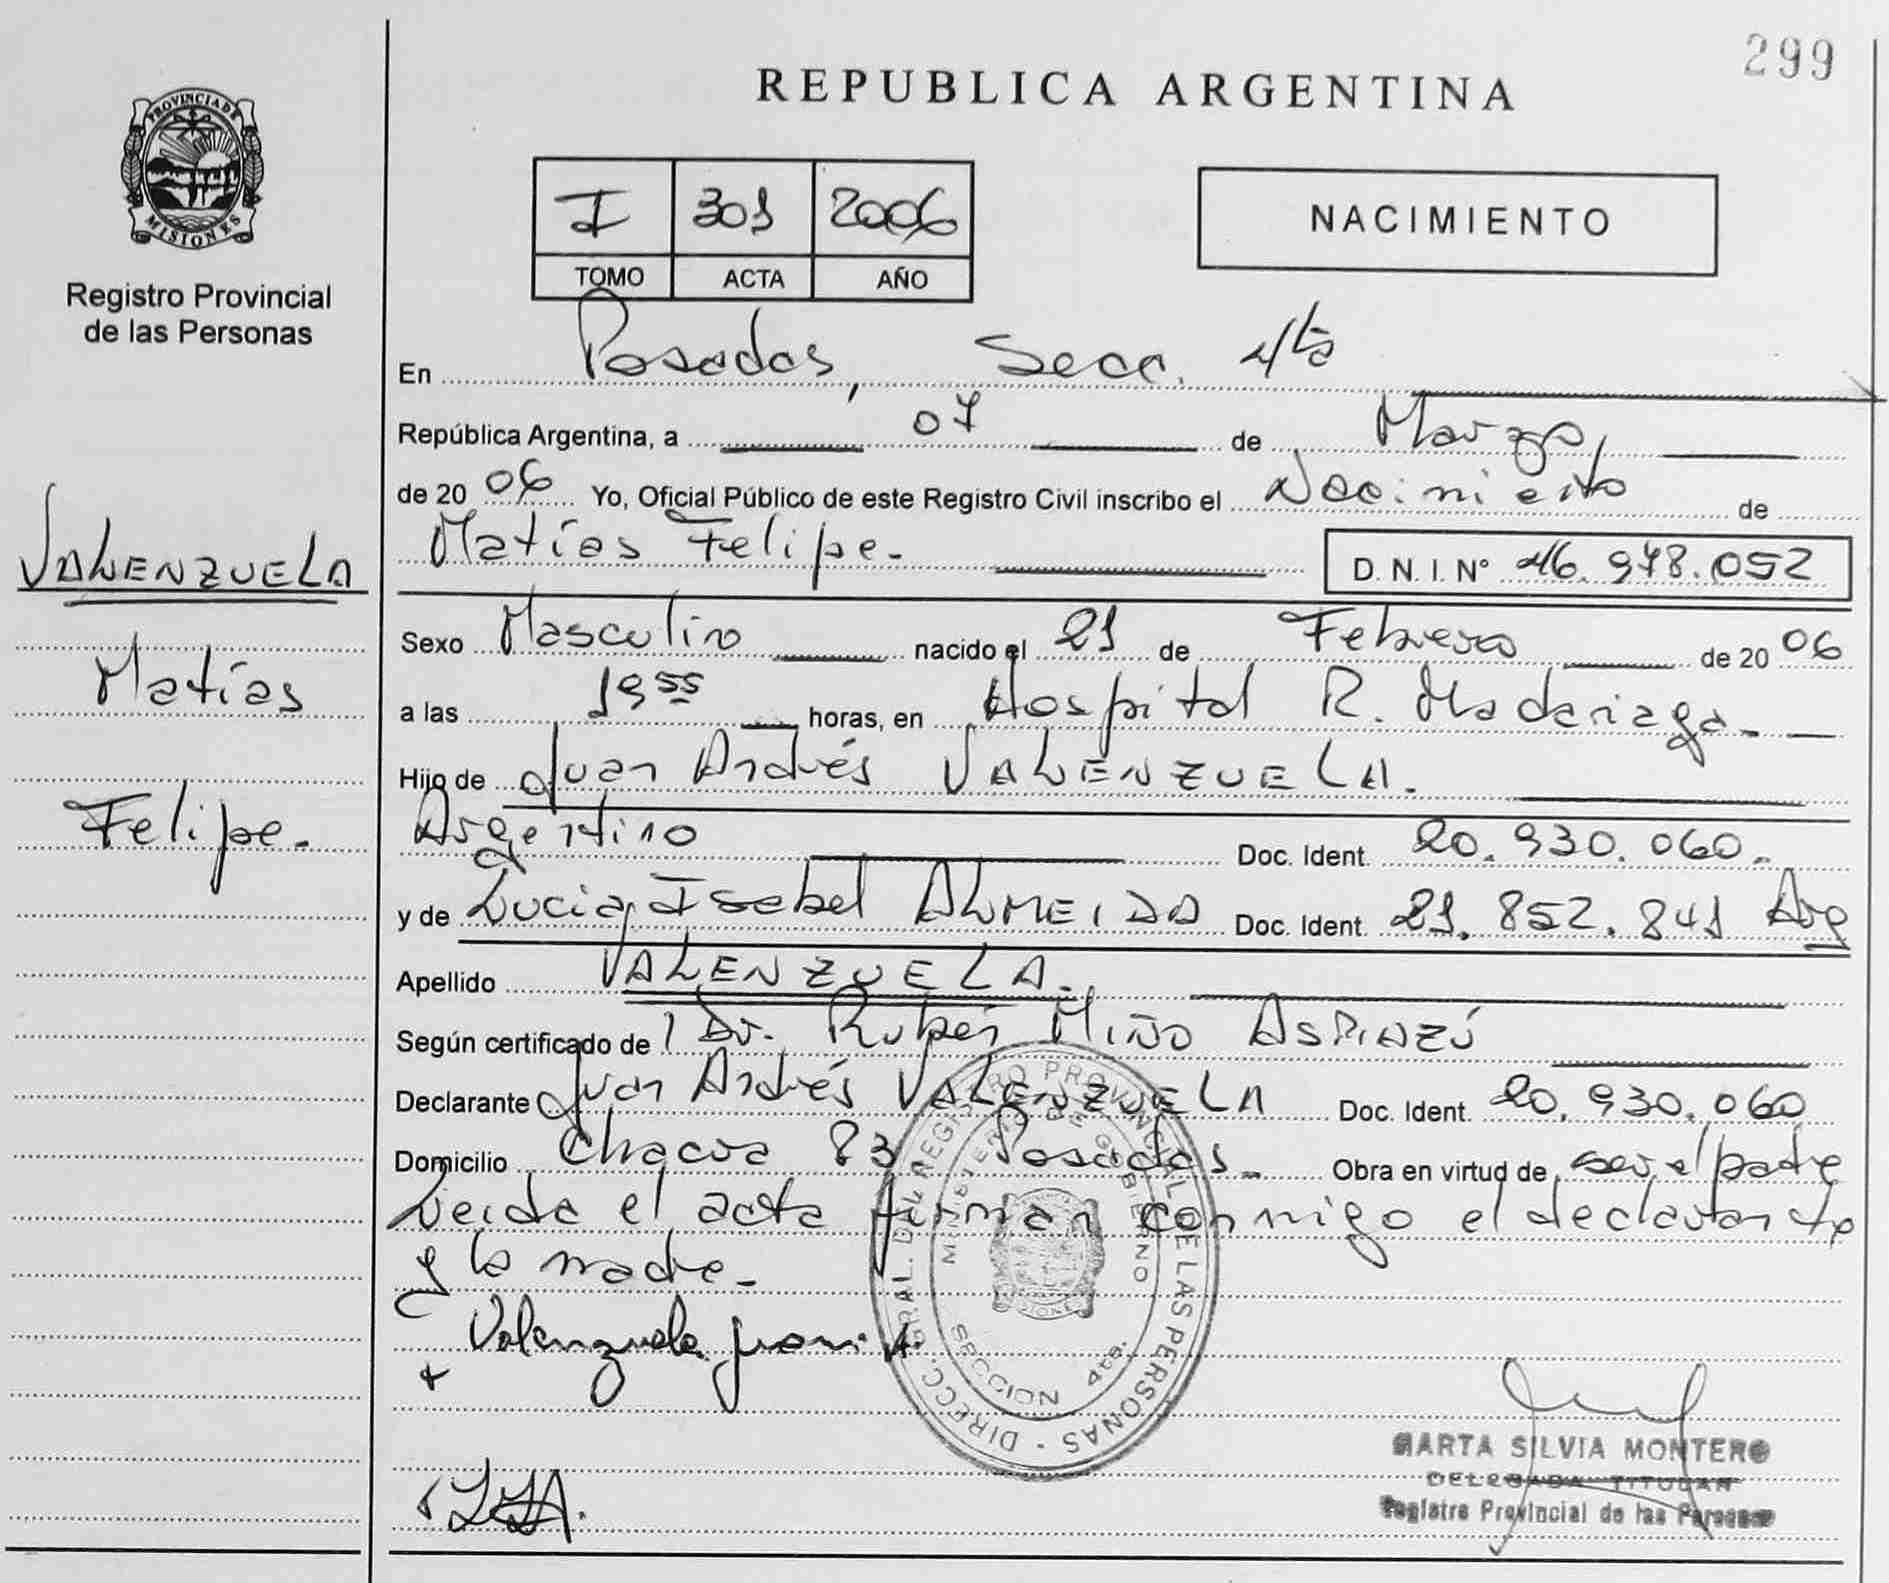 299
REPUBLICA ARGENTINA
PROVINCIA DE
MISIONES
Registro Provincial
de las Personas
I 301 2006
TOMO ACTA AÑO
NACIMIENTO
VALENZUELA
Matías
Felipe.
En Posadas, Secc. 4ta
República Argentina, a 07 de Marzo,
de 20 06 Yo, Oficial Público de este Registro Civil inscribo el Nacimiento de
Matías Felipe.
D. N. I. N° 46.978.052
Sexo Masculino nacido el 21 de Febrero de 20 06
a las 19 55 horas, en Hospital R. Madariaga.
Hijo de Juan Andrés VALENZUELA.
Argentino Doc. Ident. 20.930.060.
y de Lucia Isabel ALMEIDA Doc. Ident. 21.852.841 Arg
Apellido VALENZUELA.
Según certificado de l Dr. Rubén MIÑO ASPIAZÚ
Declarante Juan Andrés VALENZUELA Doc. Ident. 20.930.060
Domicilio Chacra 83 Posadas. Obra en virtud de ser el padre
Leida el acta firman conmigo el declarante
y la madre.
Valenzuela Juan A.
DIRECC. GRAL. DEL REGISTRO PROVINCIAL DE LAS PERSONAS
MINISTERIO DE GOBIERNO
MISIONES
SECCION 4ta.
MARTA SILVIA MONTERO
DELEGADA TITULAR
Registro Provincial de las Personas